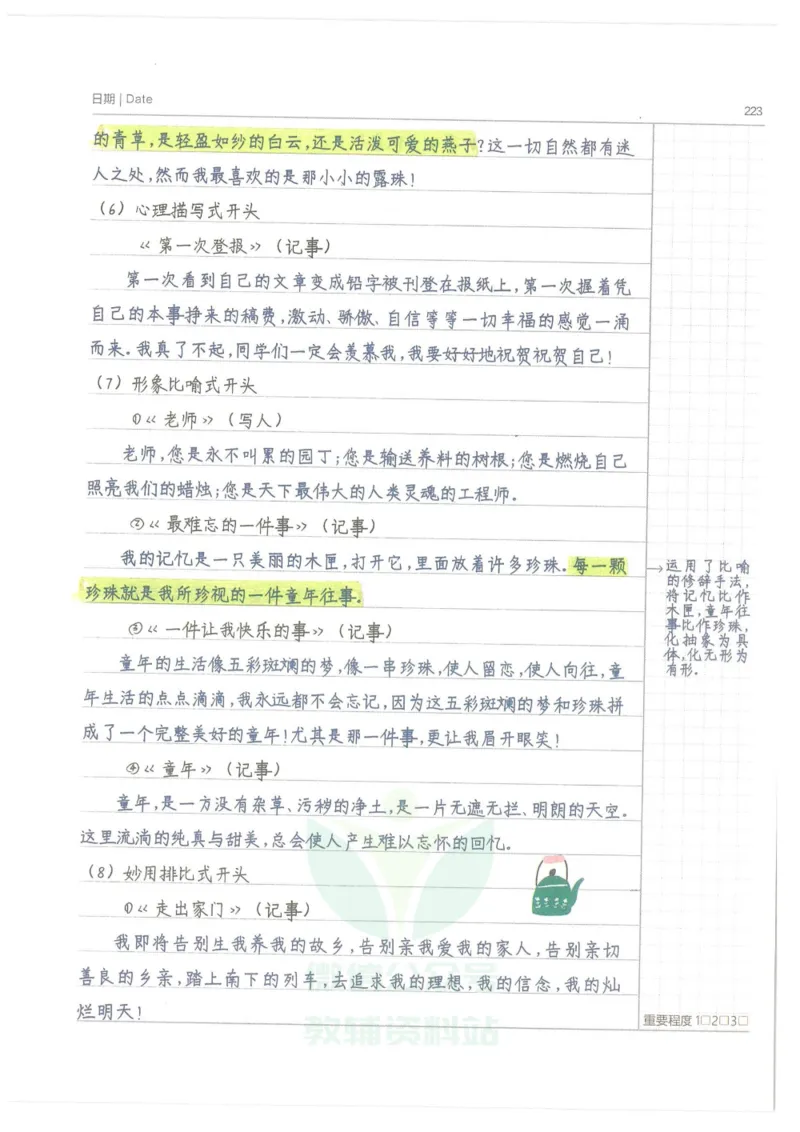 日期 | Date
223
的青草,是轻盈如纱的白云,还是活泼可爱的燕子?这一切自然都有迷
人之处,然而我最喜欢的是那小小的露珠!
(6) 心理描写式开头
《第一次登报》(记事)
第一次看到自己的文章变成铅字被刊登在报纸上,第一次握着凭
自己的本事挣来的稿费,激动、骄傲、自信等等一切幸福的感觉一涌
而来.我真了不起,同学们一定会羡慕我,我要好好地祝贺祝贺自己!
(7) 形象比喻式开头
①《老师》(写人)
老师,您是永不叫累的园丁;您是输送养料的树根;您是燃烧自己
照亮我们的蜡烛;您是天下最伟大的人类灵魂的工程师.
②《最难忘的一件事》(记事)
我的记忆是一只美丽的木匣,打开它,里面放着许多珍珠.每一颗
珍珠就是我所珍视的一件童年往事.
→运用了比喻
的修辞手法,
将记忆比作
木匣,童年往
事比作珍珠,
化抽象为具
体,化无形为
有形.
③《一件让我快乐的事》(记事)
童年的生活像五彩斑斓的梦,像一串珍珠,使人留恋,使人向往,童
年生活的点点滴滴,我永远都不会忘记,因为这五彩斑斓的梦和珍珠拼
成了一个完整美好的童年!尤其是那一件事,更让我眉开眼笑!
④《童年》(记事)
童年,是一方没有杂草、污秽的净土,是一片无遮无拦、明朗的天空.
这里流淌的纯真与甜美,总会使人产生难以忘怀的回忆.
(8) 妙用排比式开头
①《走出家门》(记事)
我即将告别生我养我的故乡,告别亲我爱我的家人,告别亲切
善良的乡亲,踏上南下的列车,去追求我的理想,我的信念,我的灿
烂明天!
重要程度 1□2□3□
微信公众号
教辅资料站